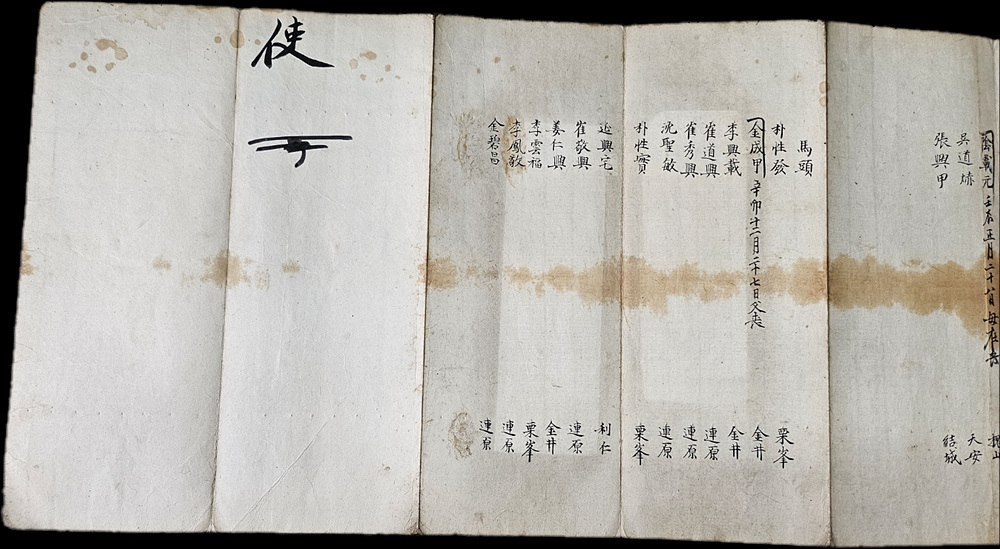 載元 壬辰正月二十
吳道 天安
張興甲 結城
馬頭
朴性發 栗峯
金成甲 辛卯十二月二十七日父喪 金井
李興載 金井
崔道興 連原
崔秀興 連原
沈聖敏 連原
朴性實 栗峯
興宅 利仁
崔敬興 連原
姜仁興 金井
李雲福 栗峯
李鳳敬 連原
金碧昌 連原
使